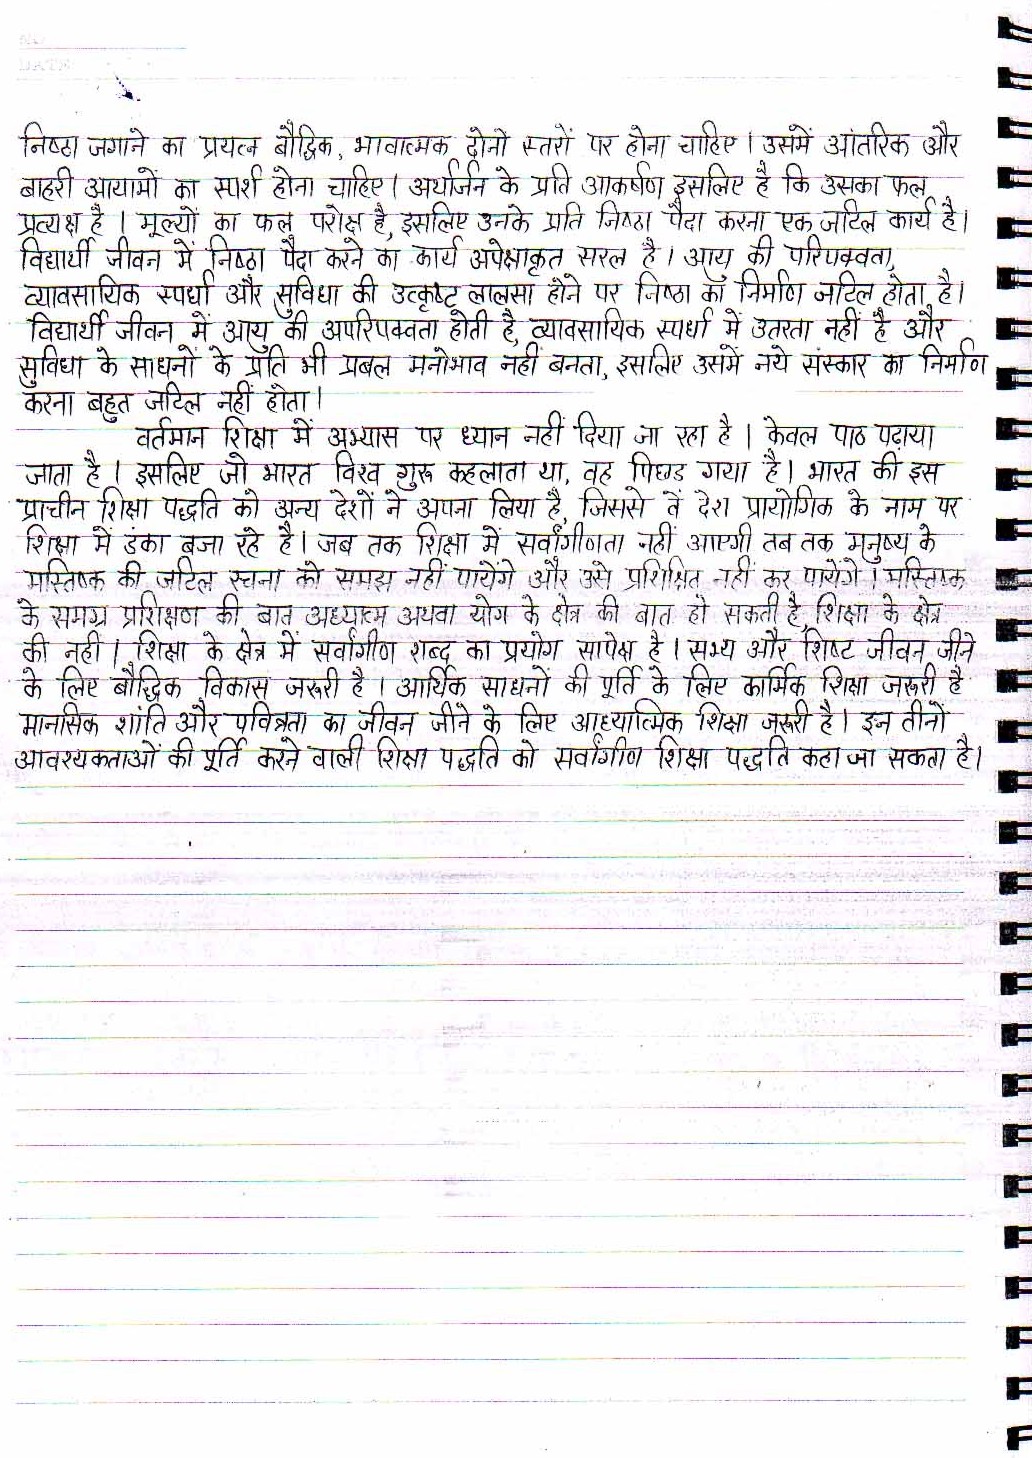 निष्ठा जगाने का प्रयत्न बौद्धिक, भावात्मक दोनों स्तरों पर होना चाहिए। उसमें आंतरिक और
बाहरी आयामों का स्पर्श होना चाहिए। अर्थार्जन के प्रति आकर्षण इसलिए है कि उसका फल
प्रत्यक्ष है। मूल्यों का फल परोक्ष है, इसलिए उनके प्रति निष्ठा पैदा करना एक जटिल कार्य है।
विद्यार्थी जीवन में निष्ठा पैदा करने का कार्य अपेक्षाकृत सरल है। आयु की परिपक्वता,
व्यावसायिक स्पर्धा और सुविधा की उत्कृष्ट लालसा होने पर निष्ठा का निर्माण जटिल होता है।
विद्यार्थी जीवन में आयु की अपरिपक्वता होती है, व्यावसायिक स्पर्धा में उतरता नहीं है और
सुविधा के साधनों के प्रति भी प्रबल मनोभाव नहीं बनता, इसलिए उसमें नये संस्कार का निर्माण
करना बहुत जटिल नहीं होता।
वर्तमान शिक्षा में अभ्यास पर ध्यान नहीं दिया जा रहा है। केवल पाठ पढ़ाया
जाता है। इसलिए जो भारत विश्व गुरू कहलाता था, वह पिछड गया है। भारत की इस
प्राचीन शिक्षा पद्धति को अन्य देशों ने अपना लिया है, जिससे वें देश प्रायोगिक के नाम पर
शिक्षा में डंका बजा रहे है। जब तक शिक्षा में सर्वांगीणता नहीं आएगी तब तक मनुष्य के
मस्तिष्क की जटिल रचना को समझ नहीं पायेंगे और उसे प्रशिक्षित नहीं कर पायेंगे। मस्तिष्क
के समग्र प्रशिक्षण की बात अध्यात्म अथवा योग के क्षेत्र की बात हो सकती है, शिक्षा के क्षेत्र
की नहीं। शिक्षा के क्षेत्र में सर्वांगीण शब्द का प्रयोग सापेक्ष है। सभ्य और शिष्ट जीवन जीने
के लिए बौद्धिक विकास जरूरी है। आर्थिक साधनों की पूर्ति के लिए कार्मिक शिक्षा जरूरी है
मानसिक शांति और पवित्रता का जीवन जीने के लिए आध्यात्मिक शिक्षा जरूरी है। इन तीनों
आवश्यकताओं की पूर्ति करने वाली शिक्षा पद्धति को सर्वांगीण शिक्षा पद्धति कहा जा सकता है।